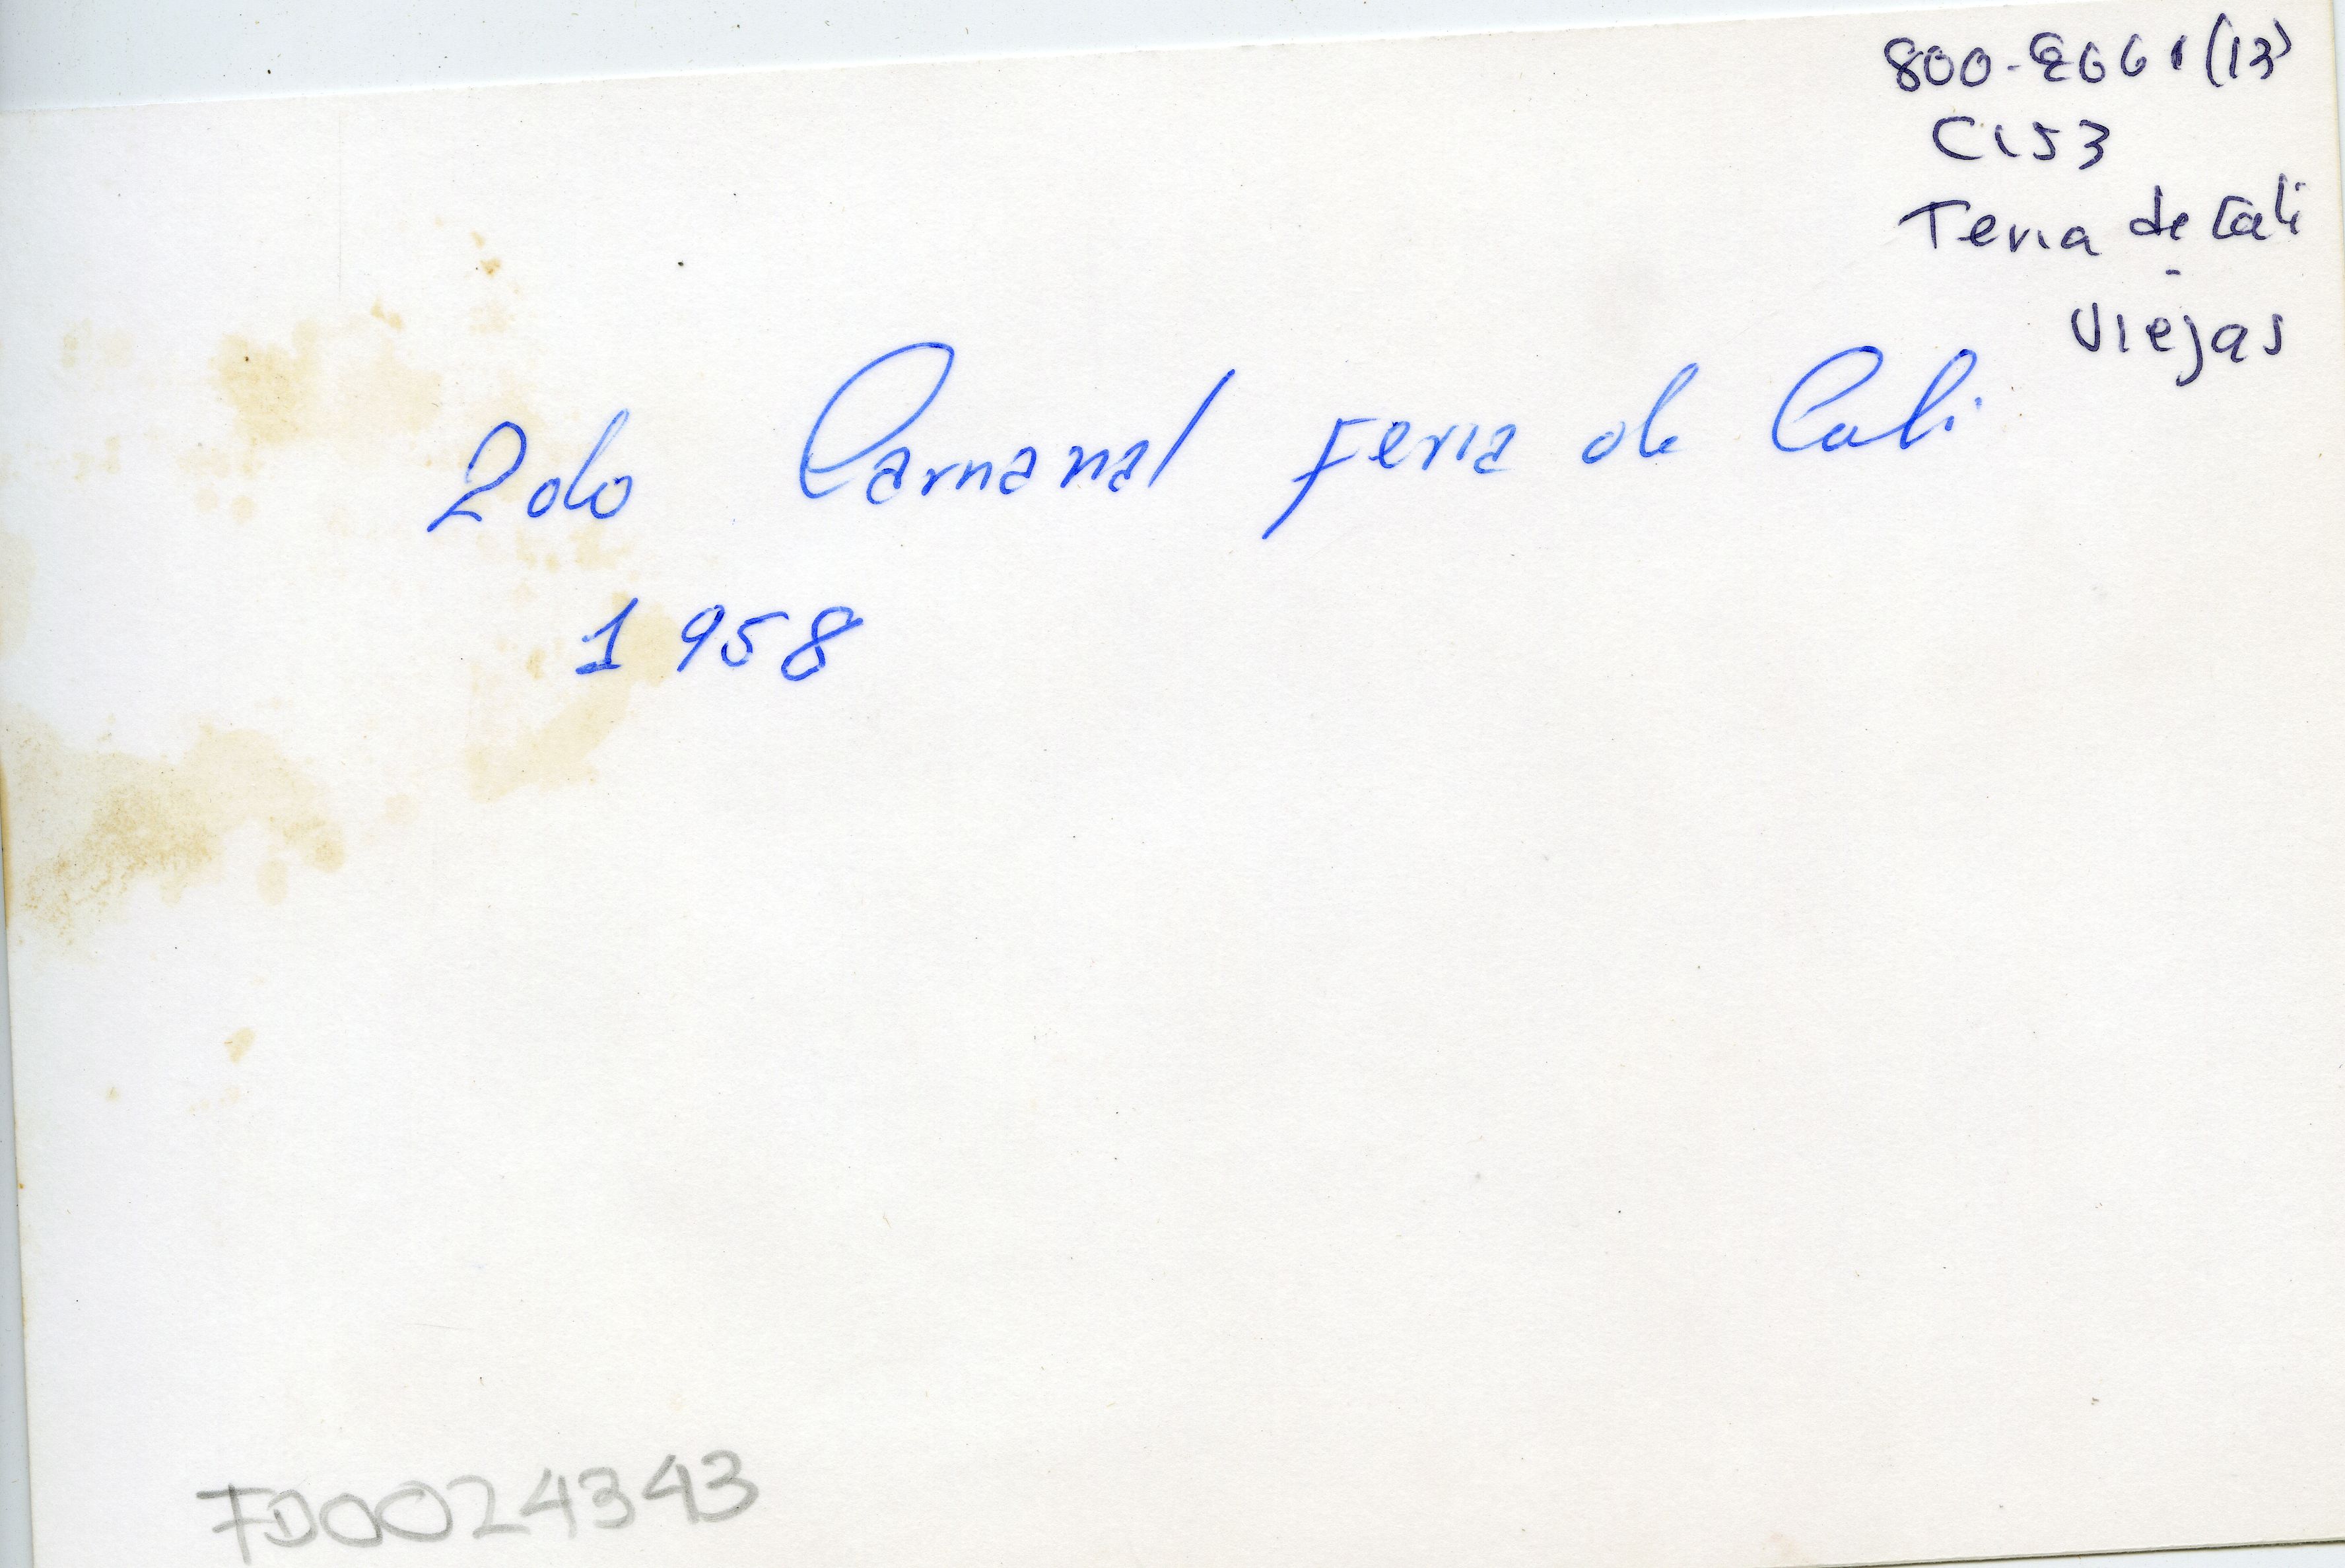 800-2661 (13)
C153
Feria de Cali
-
Viejas
2do Carnaval Feria de Cali
1958
FD0024343